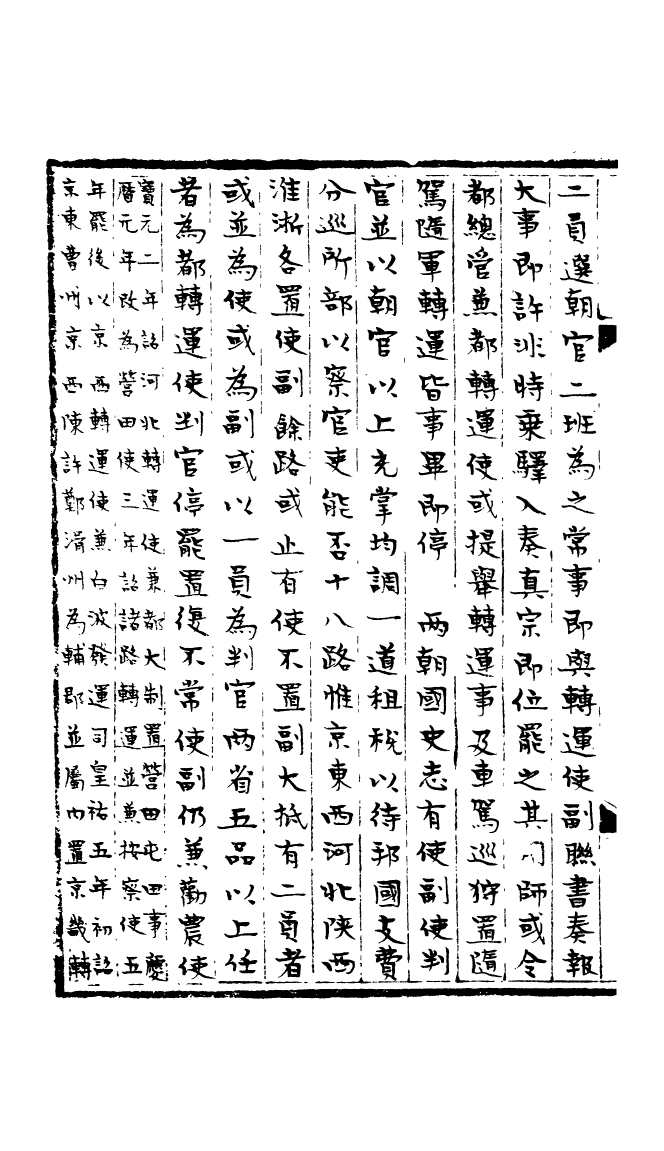 二員選朝官二班為之常事即與轉運使副聯書奏報
大事即許非時乗驛入奏真宗即位罷之其用師或令
都總管兼都轉運使或提舉轉運事及車駕巡狩置隨
駕隨軍轉運皆事畢即停　兩朝國史志有使副使判
官並以朝官以上充掌均調一道租稅以待邦國支費
分巡所部以察官吏能否十八路惟京東西河北陝西
淮淅各置使副餘路或止有使不置副大抵有二員者
或並為使或為副或以一員為判官兩省五品以上任
者為都轉運使判官停罷置復不常使副仍兼勸農使
寶元二年詔河北轉運使兼都大制置營田屯田事慶
曆元年改為營田使三年詔諸路轉運並兼按察使五
年罷後以京西轉運使兼白波發運司皇祐五年初詔
京東曹州京西陳許鄭滑州為輔郡並屬內置京畿轉